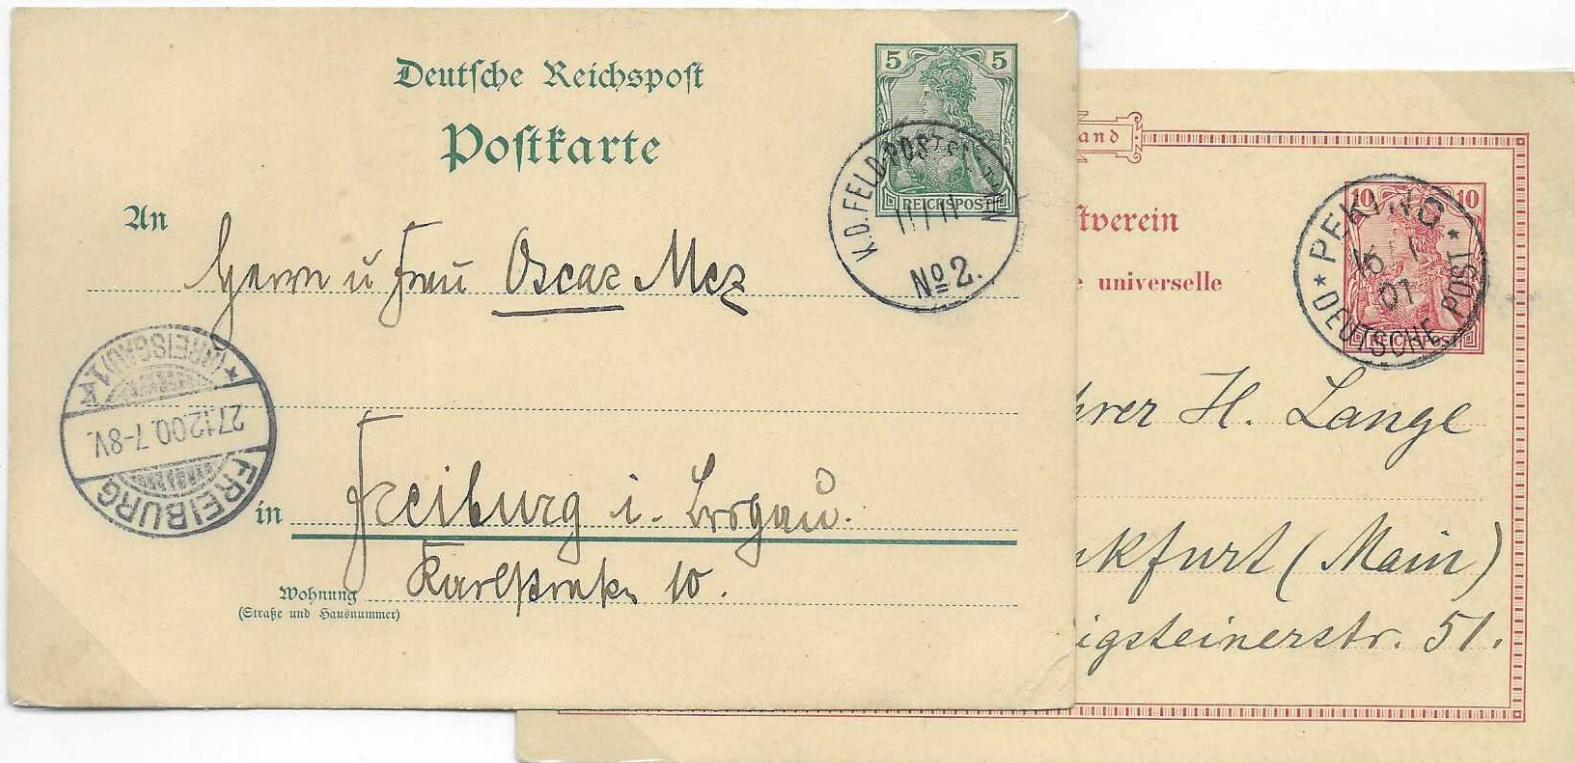 Deutsche Reichspost
Postkarte
5 5
REICHSPOST
K.D. FELD-POSTSTATION
11/11
No 2.
An
Herrn u Frau Oscar Mez
FREIBURG
(BREISGAU) 1
27.12.00. 7-8V.
in Freiburg i. Brsgau.
Wohnung
(Straße und Hausnummer)
Karlstraße 10.
and
10 10
REICHSPOST
PEKING
16
01
DEUTSCHE POST
ftverein
e universelle
hrer H. Lange
nkfurt (Main)
igsteinerstr. 51.